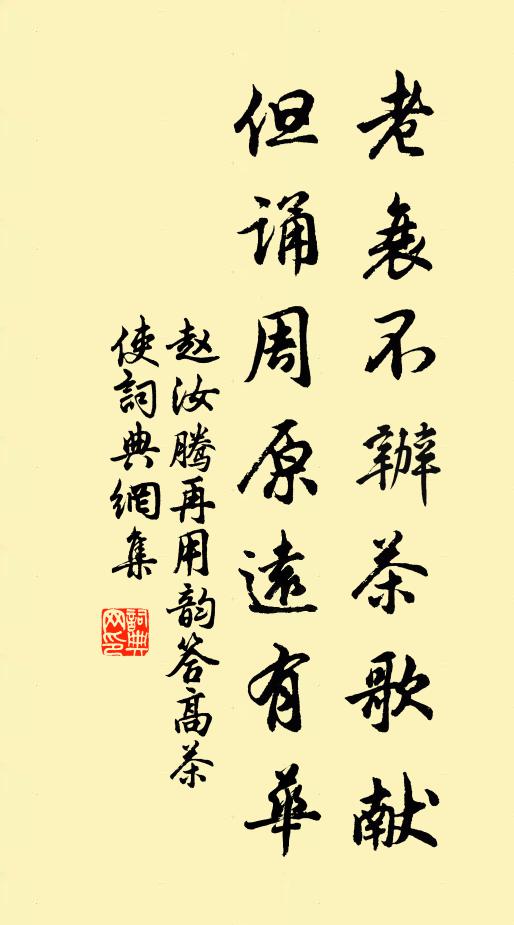 老衰不辦茶歌献
但诵周原遠有華
赵汝腾再用韵答高茶
使詞典網集
詞典網印